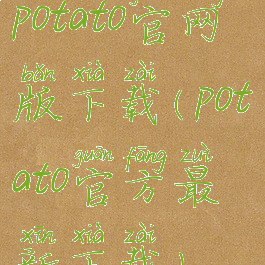 potato官网
版下载(pot
bǎn xià zài
ato官方最
guān fāng zuì
新下载)
xīn xià zài